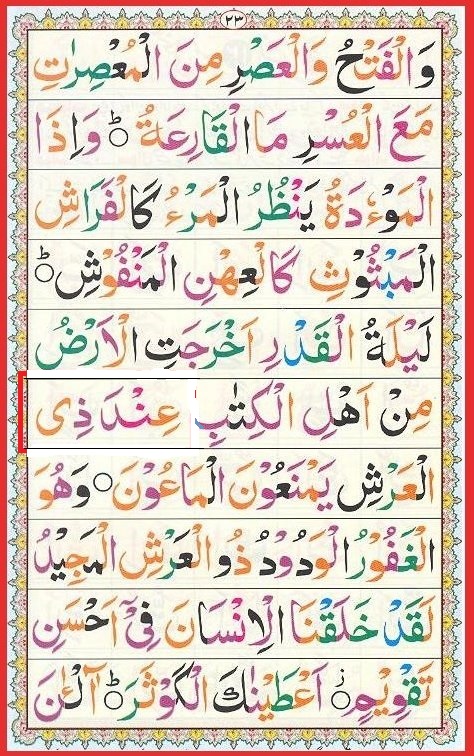 ٢٣
وَالْفَتْحُ وَالْعَصْرِ مِنَ الْمُعْصِرٰتِ
مَعَ الْعُسْرِ مَا الْقَارِعَةُ ؕ وَاِذَا
الْمَوْءٗدَةُ يَنْظُرُ الْمَرْءُ كَالْفَرَاشِ
الْمَبْثُوْثِ كَالْعِهْنِ الْمَنْفُوْشِ ؕ
لَيْلَةُ الْقَدْرِ اَخْرَجَتِ الْاَرْضُ
مِنْ اَهْلِ الْكِتٰبِ عِنْدَ ذِى
الْعَرْشِ يَمْنَعُوْنَ الْمَاعُوْنَ ○ وَهُوَ
الْغَفُوْرُ الْوَدُوْدُ ذُو الْعَرْشِ الْمَجِيْدُ
لَقَدْ خَلَقْنَا الْاِنْسَانَ فِىْٓ اَحْسَنِ
تَقْوِيْمٍ ○ اَعْطَيْنٰكَ الْكَوْثَرَ ؕ آلْـٰٔنَ